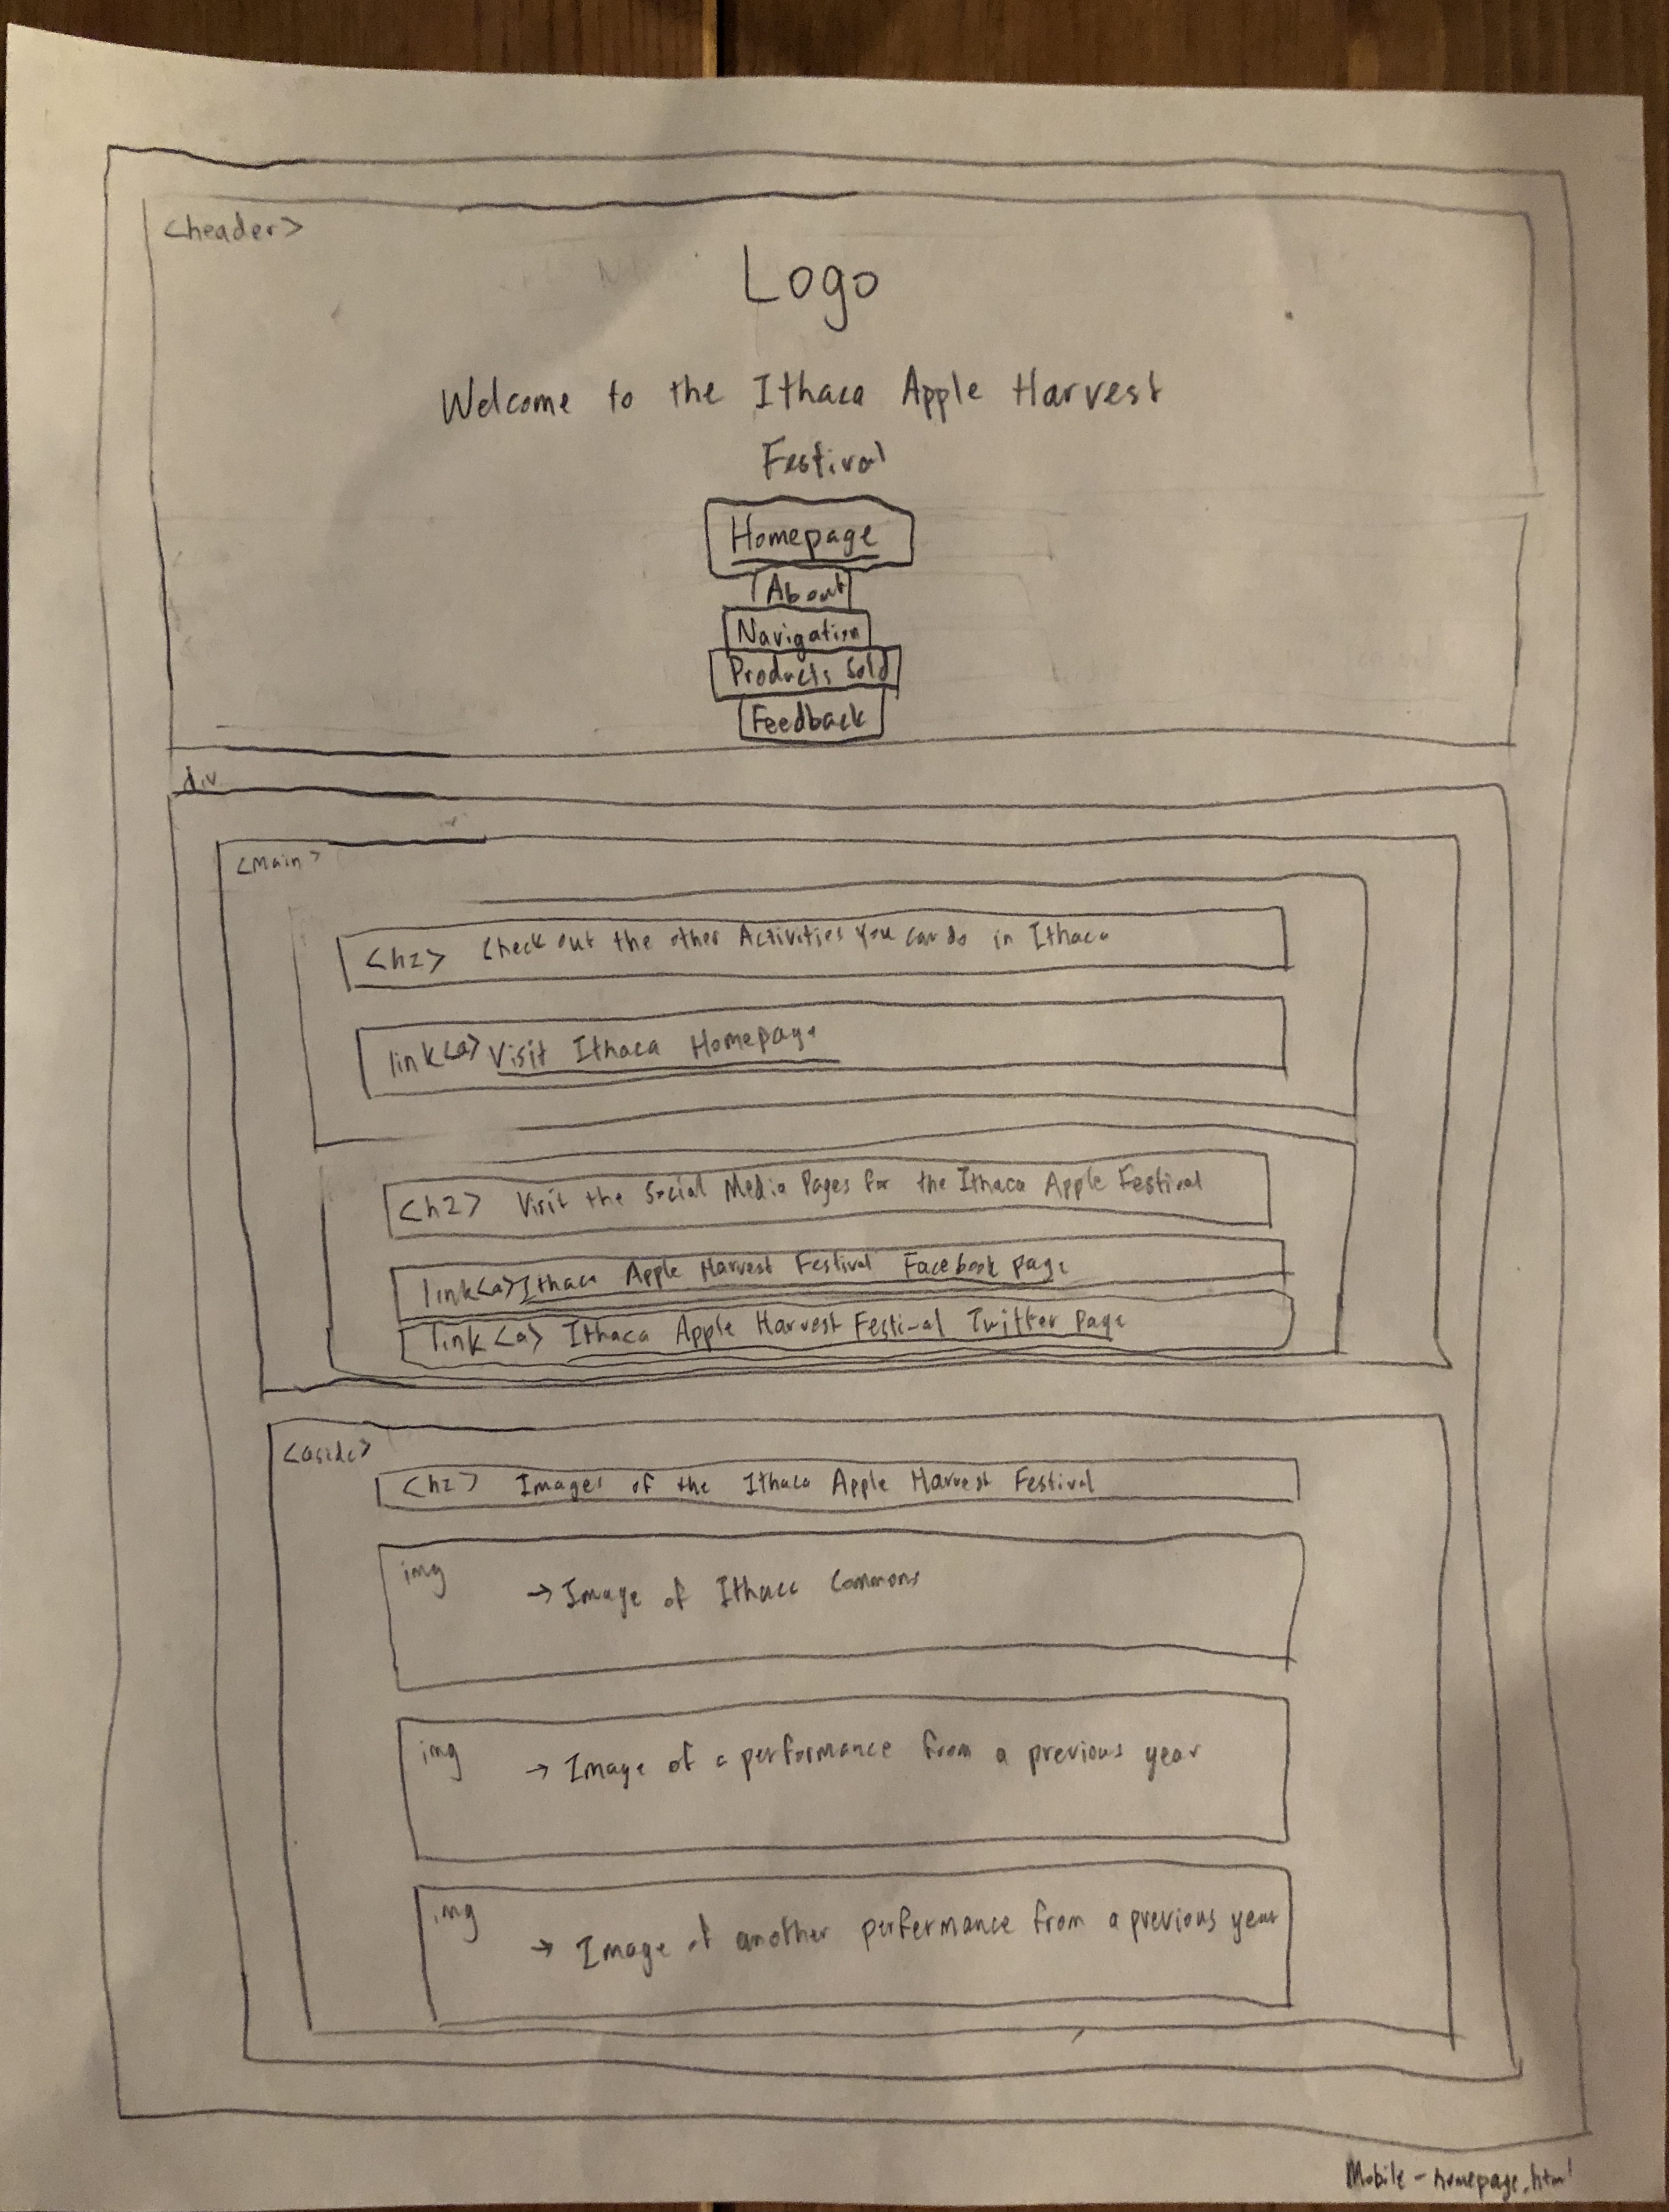 <header>
Logo
Welcome to the Ithaca Apple Harvest
Festival
Homepage
About
Navigation
Products Sold
Feedback
div
<main>
<h2> Check out the other Activities You can do in Ithaca
link<a> Visit Ithaca Homepage
<h2> Visit the Social Media Pages for the Ithaca Apple Festival
link<a> Ithaca Apple Harvest Festival Facebook page
link <a> Ithaca Apple Harvest Festival Twitter Page
<aside>
<h2> Images of the Ithaca Apple Harvest Festival
img → Image of Ithaca Commons
img → Image of a performance from a previous year
img → Image of another performance from a previous year
Mobile - homepage.html